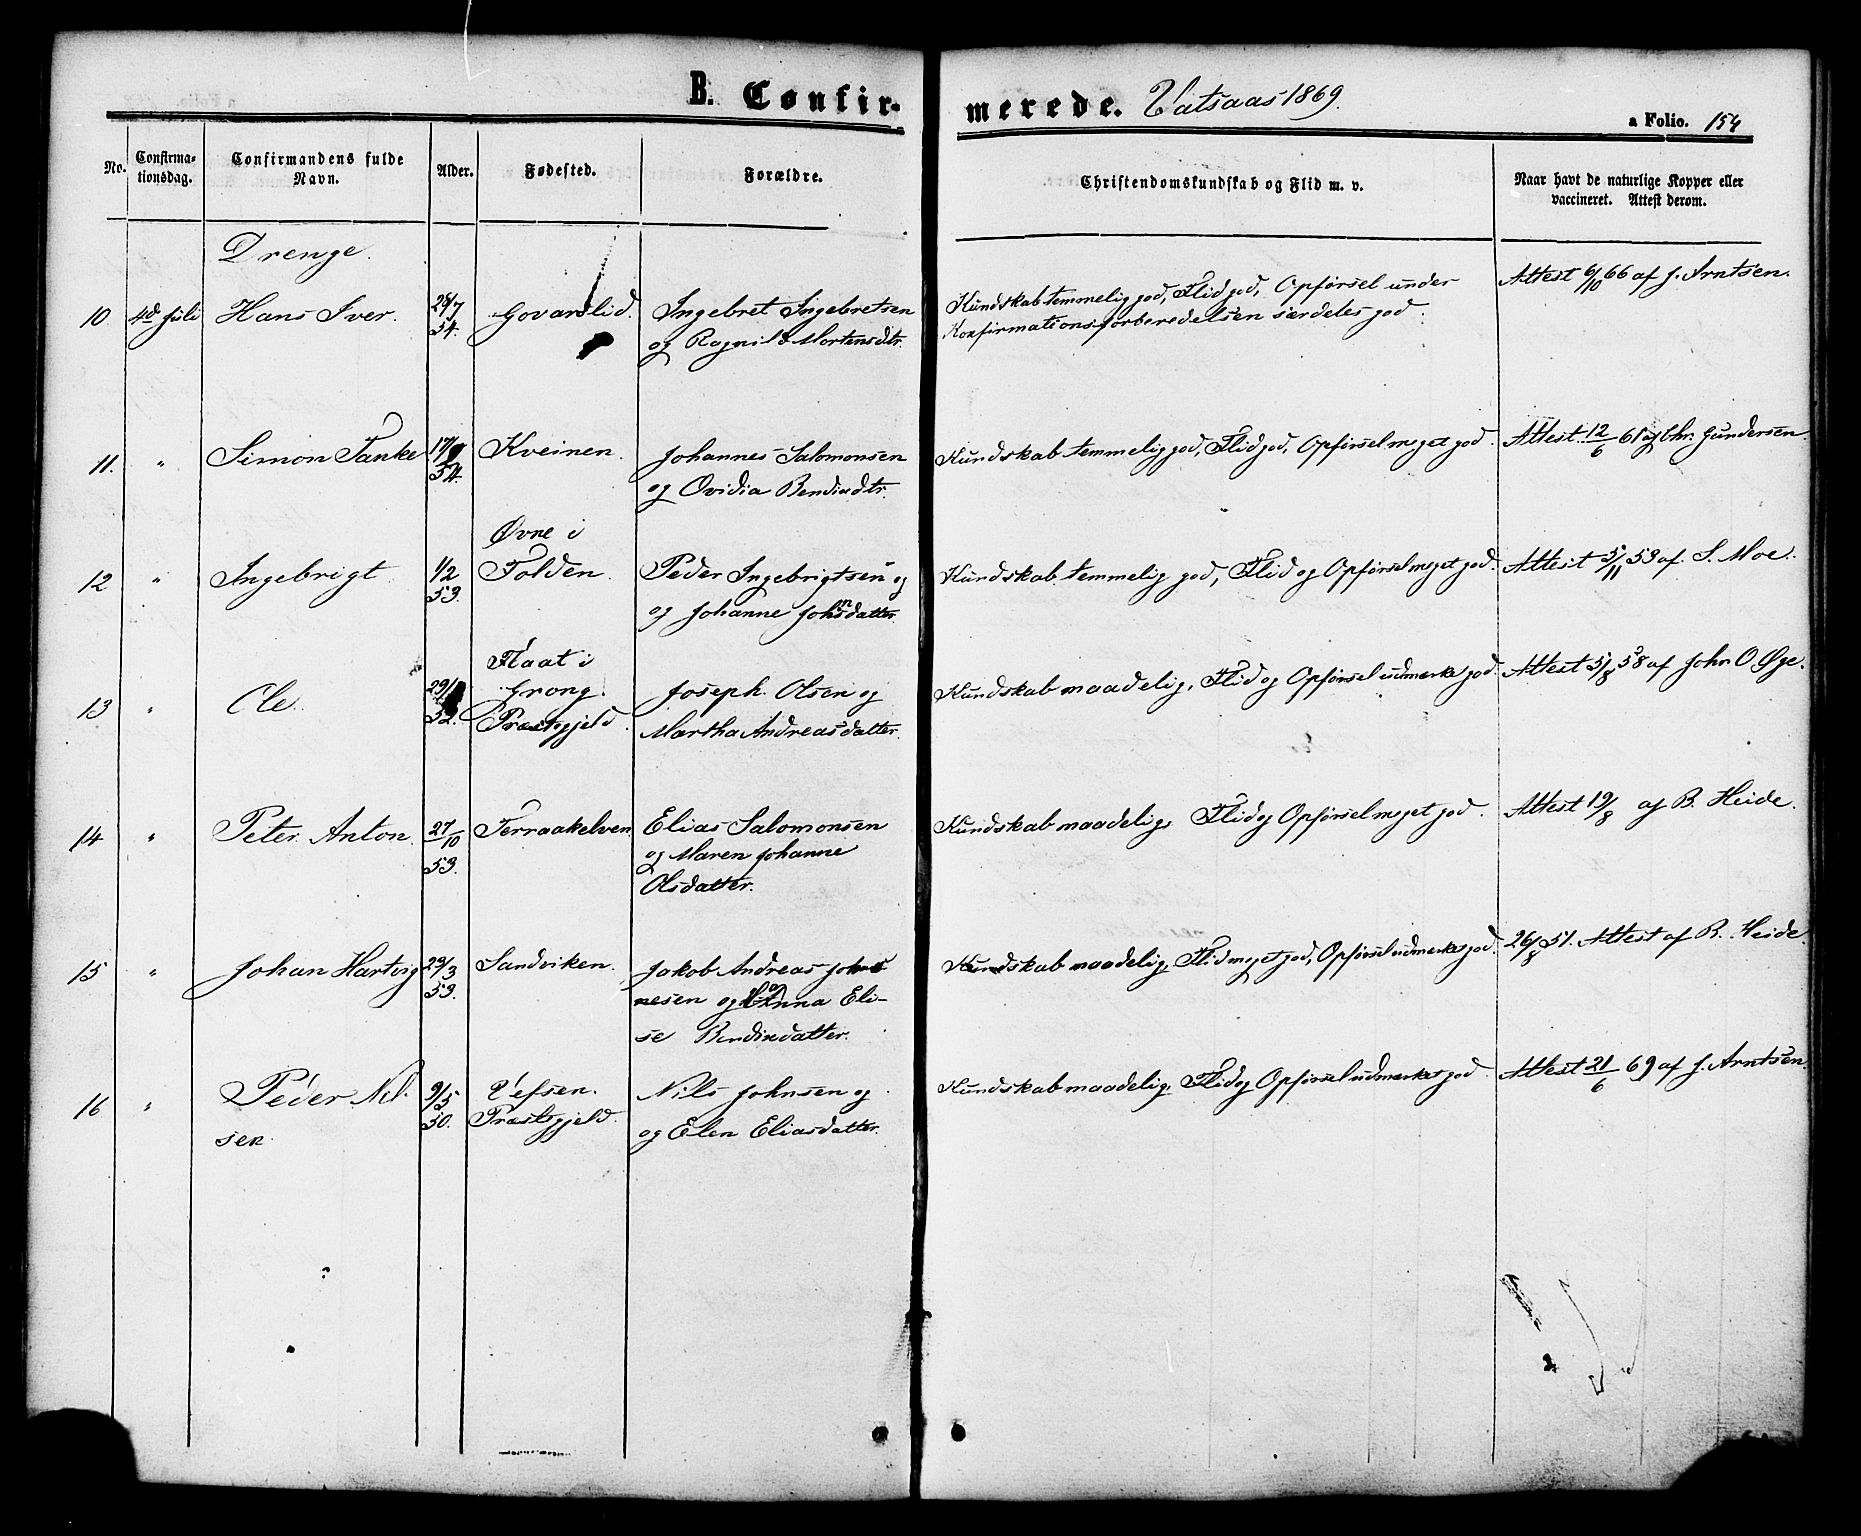 B. Confirmerede. Vatsaas 1869.
a Folio. 154
No. Confirmationsdag. Confirmandens fulde Navn. Alder. Fødested. Forældre. Christendomskundskab og Flid m. v. Naar havt de naturlige Kopper eller vaccineret. Attest derom.
Drenge.
10 4d Juli Hans Iver. 28/7 54. Govarslid. Ingebret Ingebretsen Kundskab temmelig god, Flid god, Opførsel under Attest 6/10 66 af J. Arntsen.
og Ragnild Mortensdtr. Konfirmationsforberedelsen særdeles god.
11. " Simon Tanke 17/9 54. Kveinen. Johannes Salomonsen Kundskab temmelig god, Flid god, Opførsel meget god. Attest 12/6 61 af Chr. Gundersen.
og Ovidia Bendixdtr.
Øvre i
12 " Ingebrigt 1/2 53. Folden. Peder Ingebrigtsen og Kundskab temmelig god, Flid og Opførsel meget god. Attest 5/11 53 af S. Moe.
og Johanne Johnsdatter.
Flaat i
13 " Ole. 29/ 52. Grong. Joseph Olsen og Kundskab maadelig, Flid og Opførsel udmerket god. Attest 5/8 58 af John O Øye.
Præstegjeld. Martha Andreasdatter.
14 " Peter Anton. 27/10 53. Terraakelven Elias Salomonsen Kundskab maadelig, Flid og Opførsel meget god. Attest 19/8 af B. Heide.
og Maren Johanne
Olsdatter.
15 " Johan Hartvig 29/3 53. Sandviken. Jakob Andreas Kundskab maadelig, Flid meget god, Opførsel udmerket god. 26/8 51. Attest af B. Heide.
nesen og Hanna Eli-
se Bendixdatter.
16 " Peder Nil- 9/5 50. Vefsen. Nils Johnsen og Kundskab maadelig. Flid og Opførsel udmerket god. Attest 21/6 69 af J. Arntsen.
sen Præstegjeld. og Elen Eliasdatter.